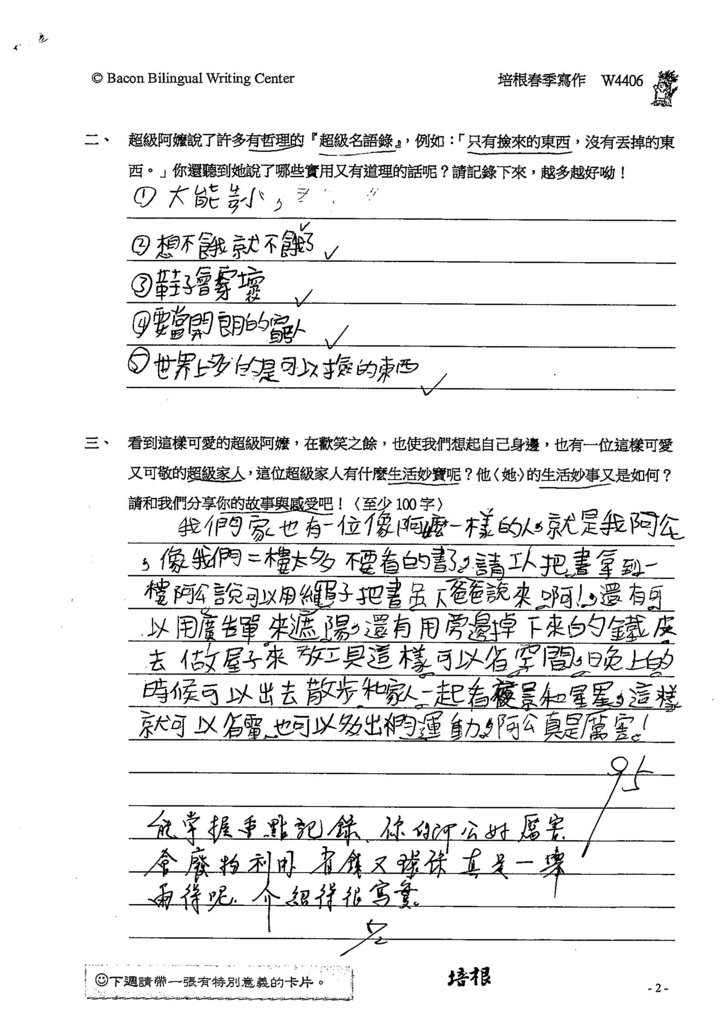 © Bacon Bilingual Writing Center
培根春季寫作 W4406
二、 超級阿嬤說了許多有哲理的『超級名語錄』,例如:「只有撿來的東西,沒有丟掉的東
西。」你還聽到她說了哪些實用又有道理的話呢?請記錄下來,越多越好呦!
①大能
②想不餓就不餓了
③鞋子會穿壞
④要當開朗的窮人
⑤世界上多的是可以撿的東西
三、 看到這樣可愛的超級阿嬤,在歡笑之餘,也使我們想起自己身邊,也有一位這樣可愛
又可敬的超級家人,這位超級家人有什麼生活妙寶呢?他〈她〉的生活妙事又是如何?
請和我們分享你的故事與感受吧!〈至少100字〉
我們家也有一位像阿嬤一樣的人,就是我阿公
,像我們二樓太多不要看的書了,請工人把書拿到一
樓阿公說可以用繩子把書吊下爸爸說來啊!,還有可
以用廣告單來遮陽,還有用旁邊掉下來的鐵皮
去做屋子來放工具這樣可以省空間,晚上的
時候可以出去散步和家人一起看夜景和星星,這樣
就可以省電也可以多出門運動,阿公真是厲害!
95
能掌握重點記錄、你的阿公好厲害
會廢物利用 省錢又環保 真是一舉
兩得呢.介紹得很寫實.
5/2
☺下週請帶一張有特別意義的卡片。
培根
- 2 -